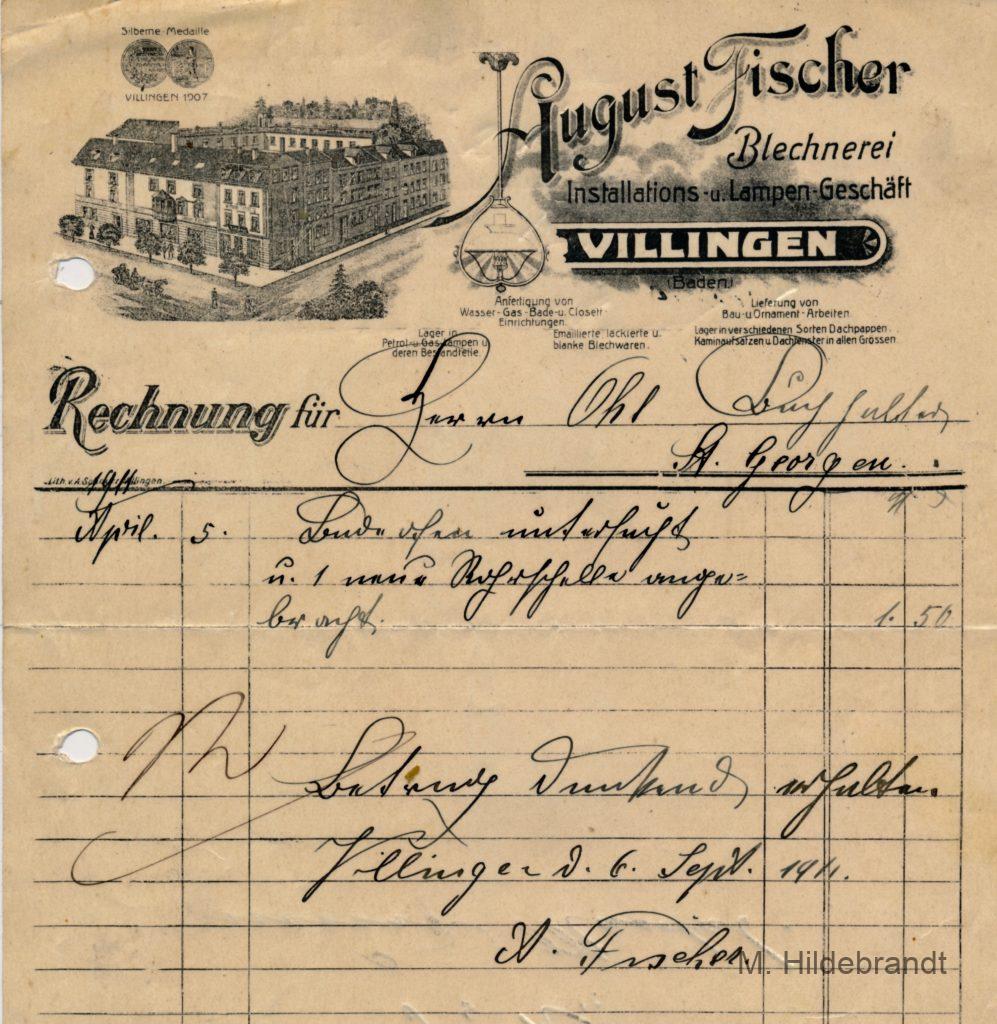 Silberne-Medaille
VILLINGEN 1907
August Fischer
Blechnerei
Installations-u. Lampen-Geschäft
VILLINGEN
(Baden)
Anfertigung von
Wasser-Gas-Bade-u. Closett-
Einrichtungen.
Lieferung von
Bau-u. Ornament-Arbeiten.
Lager in
Petrol-u. Gas-Lampen u.
deren Bestandteile.
Emaillierte lackierte u.
blanke Blechwaren.
Lager in verschiedenen Sorten Dachpappen.
Kaminaufsätzen u. Dachfenster in allen Grössen.
Rechnung für Herrn Ohl Buchhalter
St. Georgen.
Lith. v. A. Villingen
1911
April. 5. Badeofen untersucht
u. 1 neue Rohrschelle ange=
bracht. 1. 50
Betrag dankend erhalten.
Villingen d. 6. Sept. 1911.
A. Fischer.
M. Hildebrandt